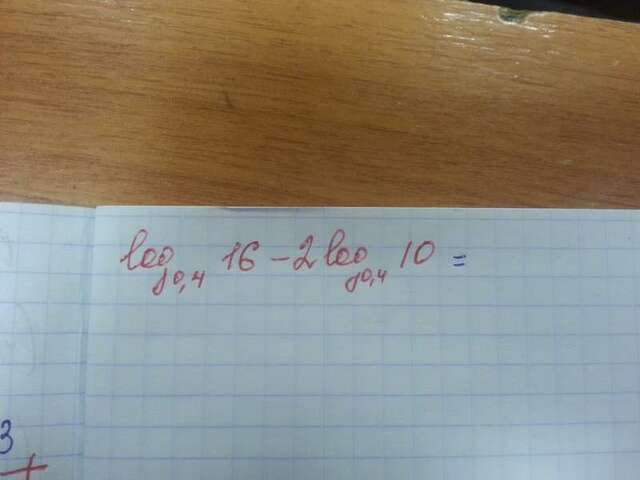 log₀,₄ 16 – 2 log₀,₄ 10 =
3
+